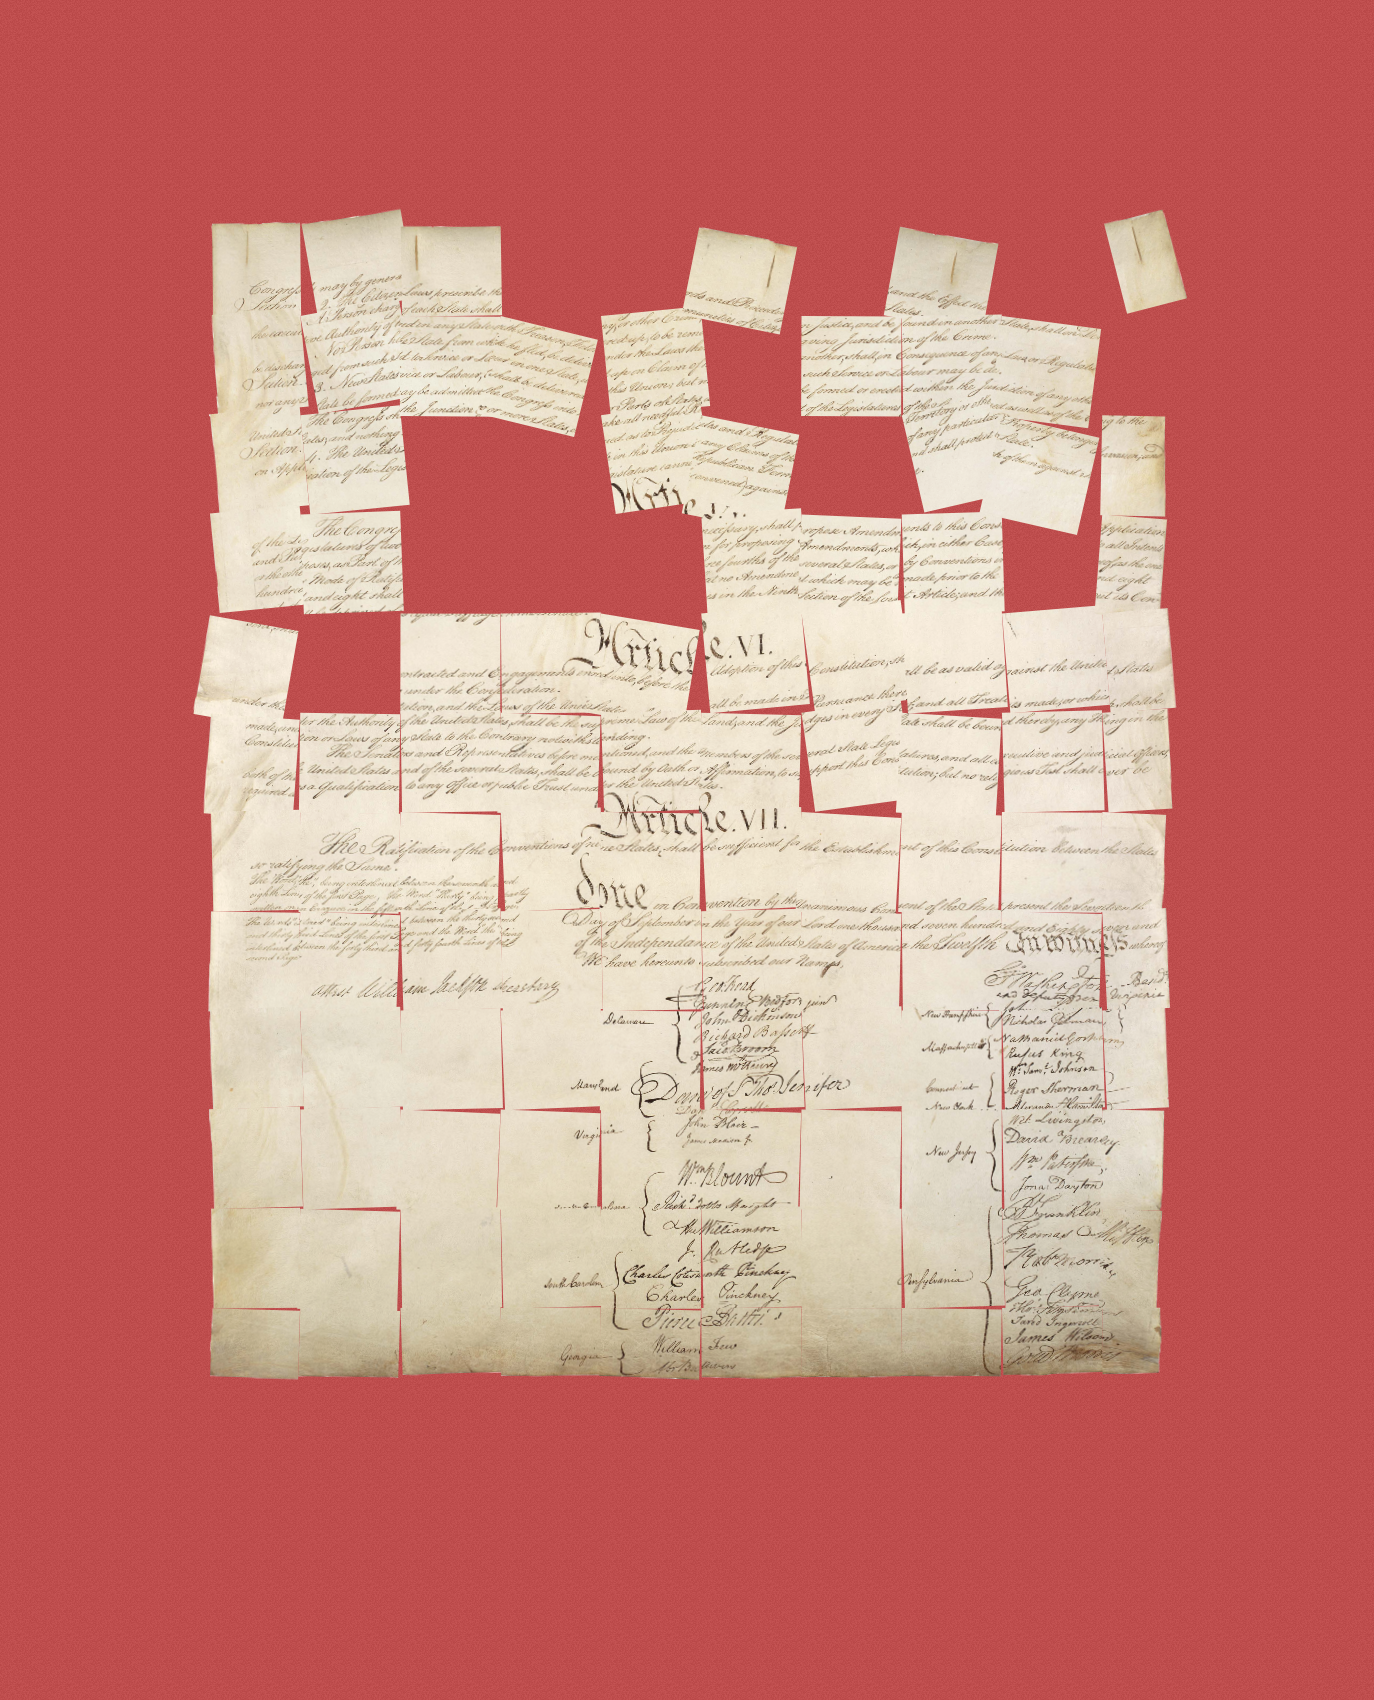 Congress may by genera
Section 2. The Citizen
nds and Records
and the Effect the
States.
A Person charg
Laws prescribe the
of each State shall
Justice, and be found in another State, shall on
having Jurisdiction of the Crime.
No Person held
State from which he fled, be deliver
up on Claim of
another, shall, in Consequence of any Law or Regulation
such Service or Labour may be due.
Section 3. New States
may be admitted by the Congress into
this Union; but n
be formed or erected within the Jurisdiction of any othe
State be formed
the Junction of two or more States,
or Parts of States,
of the Legislatures of the
The Congress sh
ake all needful R
Territory or othe
United St ates; and nothing
ed as to Prejudice any Claims of the
of any particular State.
Section 4. The United S
in this Union a Republican Form
and shall protect
h of them against
Invasion; and
on Appli cation of the Legis
islature cannot be convened) against
Article. V.
The Congre
necessary, shall propose Amendments to this Cons
Application
of the Legislatures of two
for proposing Amendments, wh
in either Case
all Intents
and Purposes, as Part of th
ree fourths of the several States, or by Conventions in
eof, as the one
or the other Mode of Ratifi
at no Amendme
t which may be made prior to the
and eight
hundred and eight shall
es in the Ninth Section of the first Article; and tha
Article. VI.
ontracted and Engagements entered into, before the Adoption of this Constitution, sh
all be as valid against the United States
under the under the Confederation.
tution, and the Laws of the United States
all be made in Pursuance there
and all Treat
s made, or which shall be
made, under the Authority of the United States, shall be the supreme Law of the Land; and the Judges in every S
tate shall be bound thereby, any Thing in the
Constitution or Laws of any State to the Contrary notwithstanding.
The Senators and Representatives before mentioned, and the Members of the several State Legislatures, and all executive and judicial Officers,
both of the United States and of the several States, shall be bound by Oath or Affirmation, to support this Constitution; but no religious Test shall ever be
required as a Qualification to any Office or public Trust under the United States.
Article. VII.
The Ratification of the Conventions of nine States, shall be sufficient for the Establishment of this Constitution between the States
so ratifying the Same.
The Word, "the," being interlined between the seventh and
eighth Lines of the first Page, the Word "Thirty" being partly
written on an Erazure in the fifteenth Line of the first Page,
The Words "is tried" being interlined between the thirty second
and thirty third Lines of the first Page and the Word "the" being
interlined between the forty third and forty fourth Lines of the
second Page.
done in Convention by the Unanimous Consent of the States present the Seventeenth
Day of September in the Year of our Lord one thousand seven hundred and Eighty seven and
of the Independance of the United States of America the Twelfth In witness whereof
We have hereunto subscribed our Names,
Attest William Jackson Secretary
Go: Washington
Presidt
and deputy from Virginia
Delaware
Geo: Read
Gunning Bedford jun
John Dickinson
Richard Bassett
Jaco: Broom
Maryland
James McHenry
Dan of St Thos Jenifer
Danl Carroll
Virginia
John Blair—
James Madison Jr
North Carolina
Wm Blount
Richd Dobbs Spaight
Hu Williamson
South Carolina
J. Rutledge
Charles Cotesworth Pinckney
Charles Pinckney
Pierce Butler.
Georgia
William Few
Abr Baldwin
New Hampshire
Joh
Nicholas Gilman
Massachusetts
Nathaniel Gorham
Rufus King
Connecticut
Wm Saml Johnson
Roger Sherman
New York
Alexander Hamilton
New Jersey
Wil: Livingston
David Brearley
Wm Paterson
Jona: Dayton
Pensylvania
B Franklin
Thomas Mifflin
Robt Morris
Geo. Clymer
Thos FitzSimons
Jared Ingersoll
James Wilson
Gouv Morris